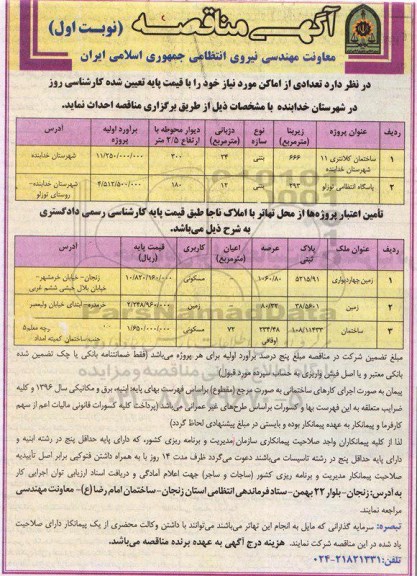 آگهی مناقصه (نوبت اول)
معاونت مهندسی نیروی انتظامی جمهوری اسلامی ایران
در نظر دارد تعدادی از اماکن مورد نیاز خود را با قیمت پایه تعیین شده کارشناسی روز
در شهرستان خدابنده با مشخصات ذیل از طریق برگزاری مناقصه احداث نماید.
ردیف عنوان پروژه زیربنا (مترمربع) نوع سازه دژبانی (مترمربع) دیوار محوطه با ارتفاع ۲/۵ متر برآورد اولیه پروژه آدرس
۱ ساختمان کلانتری ۱۱ شهرستان خدابنده ۶۶۶ بتنی ۲۴ ۲۰۰ ۱۱/۲۵۰/۰۰۰/۰۰۰ شهرستان خدابنده
۲ پاسگاه انتظامی توزلو ۲۹۳ بتنی ۱۲ ۱۸۰ ۴/۵۱۲/۵۰۰/۰۰۰ شهرستان خدابنده- روستای توزلو
تأمین اعتبار پروژه‌ها از محل تهاتر با املاک ناجا طبق قیمت پایه کارشناسی رسمی دادگستری
به شرح ذیل می‌باشد.
ردیف عنوان ملک پلاک ثبتی عرصه اعیان (مترمربع) کاربری قیمت پایه (ریال) آدرس
۱ زمین چهاردیواری ۵۲۱۵/۹۱ ۱۰۶۰/۸۰ مسکونی ۱۰/۸۲۰/۱۶۰/۰۰۰ زنجان- خیابان خرمشهر- خیابان بلال حبشی ششم غربی
۲ زمین ۳۸/۵۶۰۱ ۸۰/۳۲ زمین ۲/۲۴۸/۹۶۰/۰۰۰ خرمدره- ابتدای خیابان ولیعصر
۳ ساختمان ۱۰۸/۱۱۴۳۳ ۲۳۴/۴۸ اوقافی ۷۲ مسکونی ۱/۶۵۰/۰۰۰/۰۰۰ رجه معلم۵ جنب ساختمان کمیته امداد
مبلغ تضمین شرکت در مناقصه مبلغ پنج درصد برآورد اولیه برای هر پروژه می‌باشد (فقط ضمانتنامه بانکی یا چک تضمین شده
بانکی معتبر و یا اصل فیش واریزی به حساب سپرده مورد قبول)
پیمان به صورت اجرای کارهای ساختمانی به صورت سرجمع (مقطوع) براساس فهرست بهای پایه: ابنیه، برق و مکانیکی سال ۱۳۹۶ و کلیه
ضرایب متعلقه به این فهرست بها و کسورات براساس طرح‌های غیر عمرانی می‌باشد (پرداخت کلیه کسورات قانونی مالیات اعم از سهم
کارفرما و پیمانکار به عهده پیمانکار بوده و بایستی در مبلغ پیشنهادی لحاظ گردد)
لذا از کلیه پیمانکاران واجد صلاحیت پیمانکاری سازمان مدیریت و برنامه ریزی کشور، که دارای پایه حداقل پنج در رشته ابنیه و
دارای پایه حداقل پنج در رشته تاسیسات می‌باشند دعوت می‌گردد ظرف مدت ۱۴ روز با به همراه داشتن فتوکپی برابر اصل تأییدیه
صلاحیت پیمانکار مدیریت و برنامه ریزی کشور (ساجات و ساجر) جهت اعلام آمادگی و دریافت اسناد ارزیابی توان اجرایی کار
به آدرس: زنجان- بلوار ۲۲ بهمن- ستاد فرماندهی انتظامی استان زنجان- ساختمان امام رضا (ع)- معاونت مهندسی
مراجعه نمایند.
تبصره: سرمایه گذارانی که مایل به انجام این تهاتر می‌باشند می‌توانند با داشتن وکالت محضری از یک پیمانکار دارای صلاحیت
یاد شده در این مناقصه شرکت نمایند. هزینه درج آگهی به عهده برنده مناقصه می‌باشد.
تلفن: ۲۱۸۲۱۳۳۱-۰۲۴